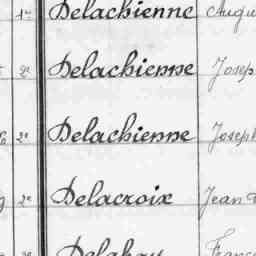 1er Delachienne Augu
2e Delachienne Josep
2e Delachienne Joseph
2e Delacroix Jean
Delahay Franç